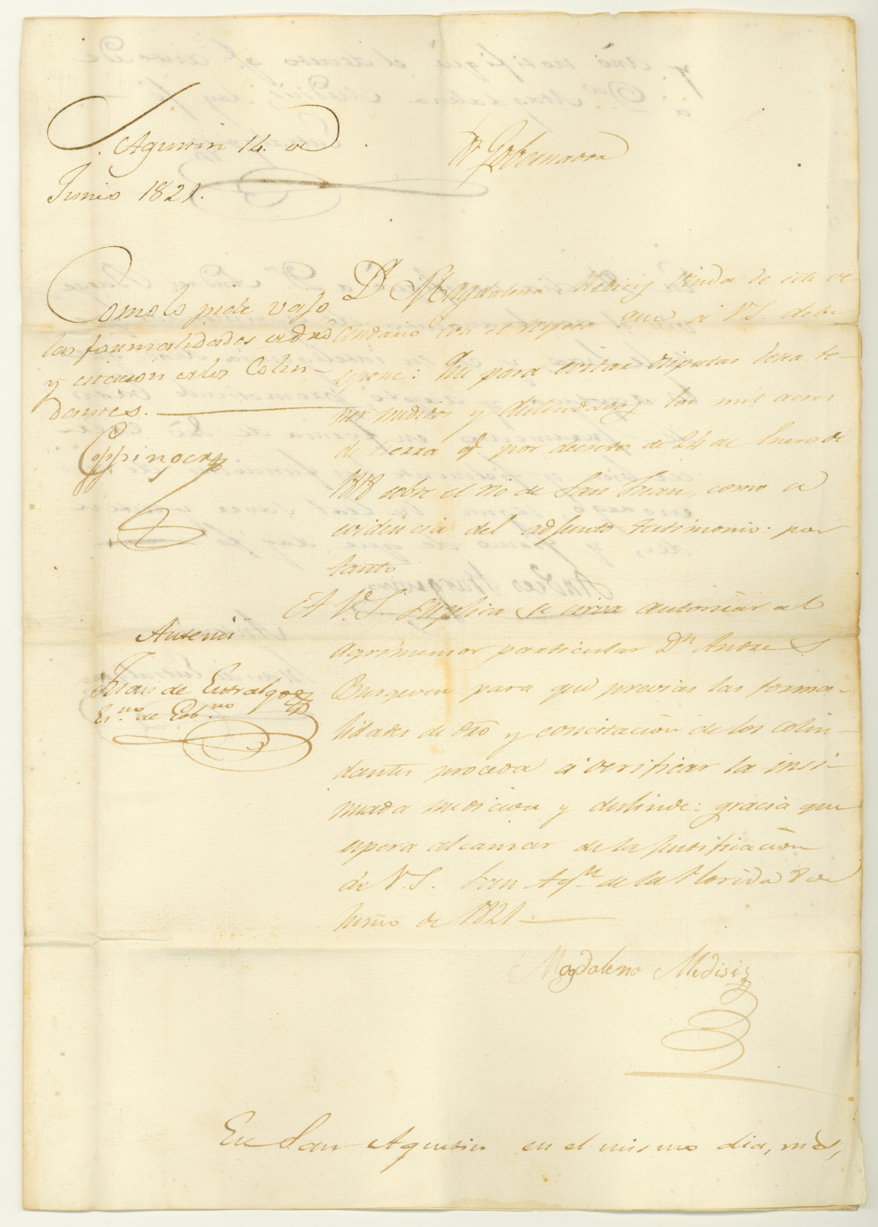 S. Agustin 14 de
Junio 1821.
Como lo pide vajo
las formalidades de dro
y citacion de los Colin-
dantes.
Coppinger
Antemi
Juan de Entralgo
Es.no de Gob.no
Sr Gobernador
Da Magdalena Medicis Viuda de este ve-
cindario con el respeto que á V.S. debe
expone: Que para evitar disputas desea te-
ner medidos y deslindados los mil acres
de tierra qe por decreto de 24 de Enero de
1818 sobre el rio de San Juan, como se
evidencia del adjunto testimonio: por
tanto
A V.S. suplica se sirva autorizar al
Agrimensor particular Dn Andres
Burgevin para que previas las forma-
lidades de dro y concitacion de los colin-
dantes proceda á verificar la insi-
nuada medicion y deslinde: gracia que
espera alcanzar de la justificacion
de V.S. San Agn de la Florida 8 de
Junio de 1821
Magdalena Medisis
En San Agustin en el mismo dia, mes,